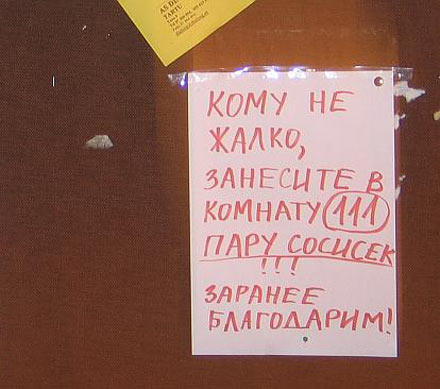 TARTU
КОМУ НЕ
ЖАЛКО,
ЗАНЕСИТЕ В
КОМНАТУ 111
ПАРУ СОСИСЕК
!!!
ЗАРАНЕЕ
БЛАГОДАРИМ!